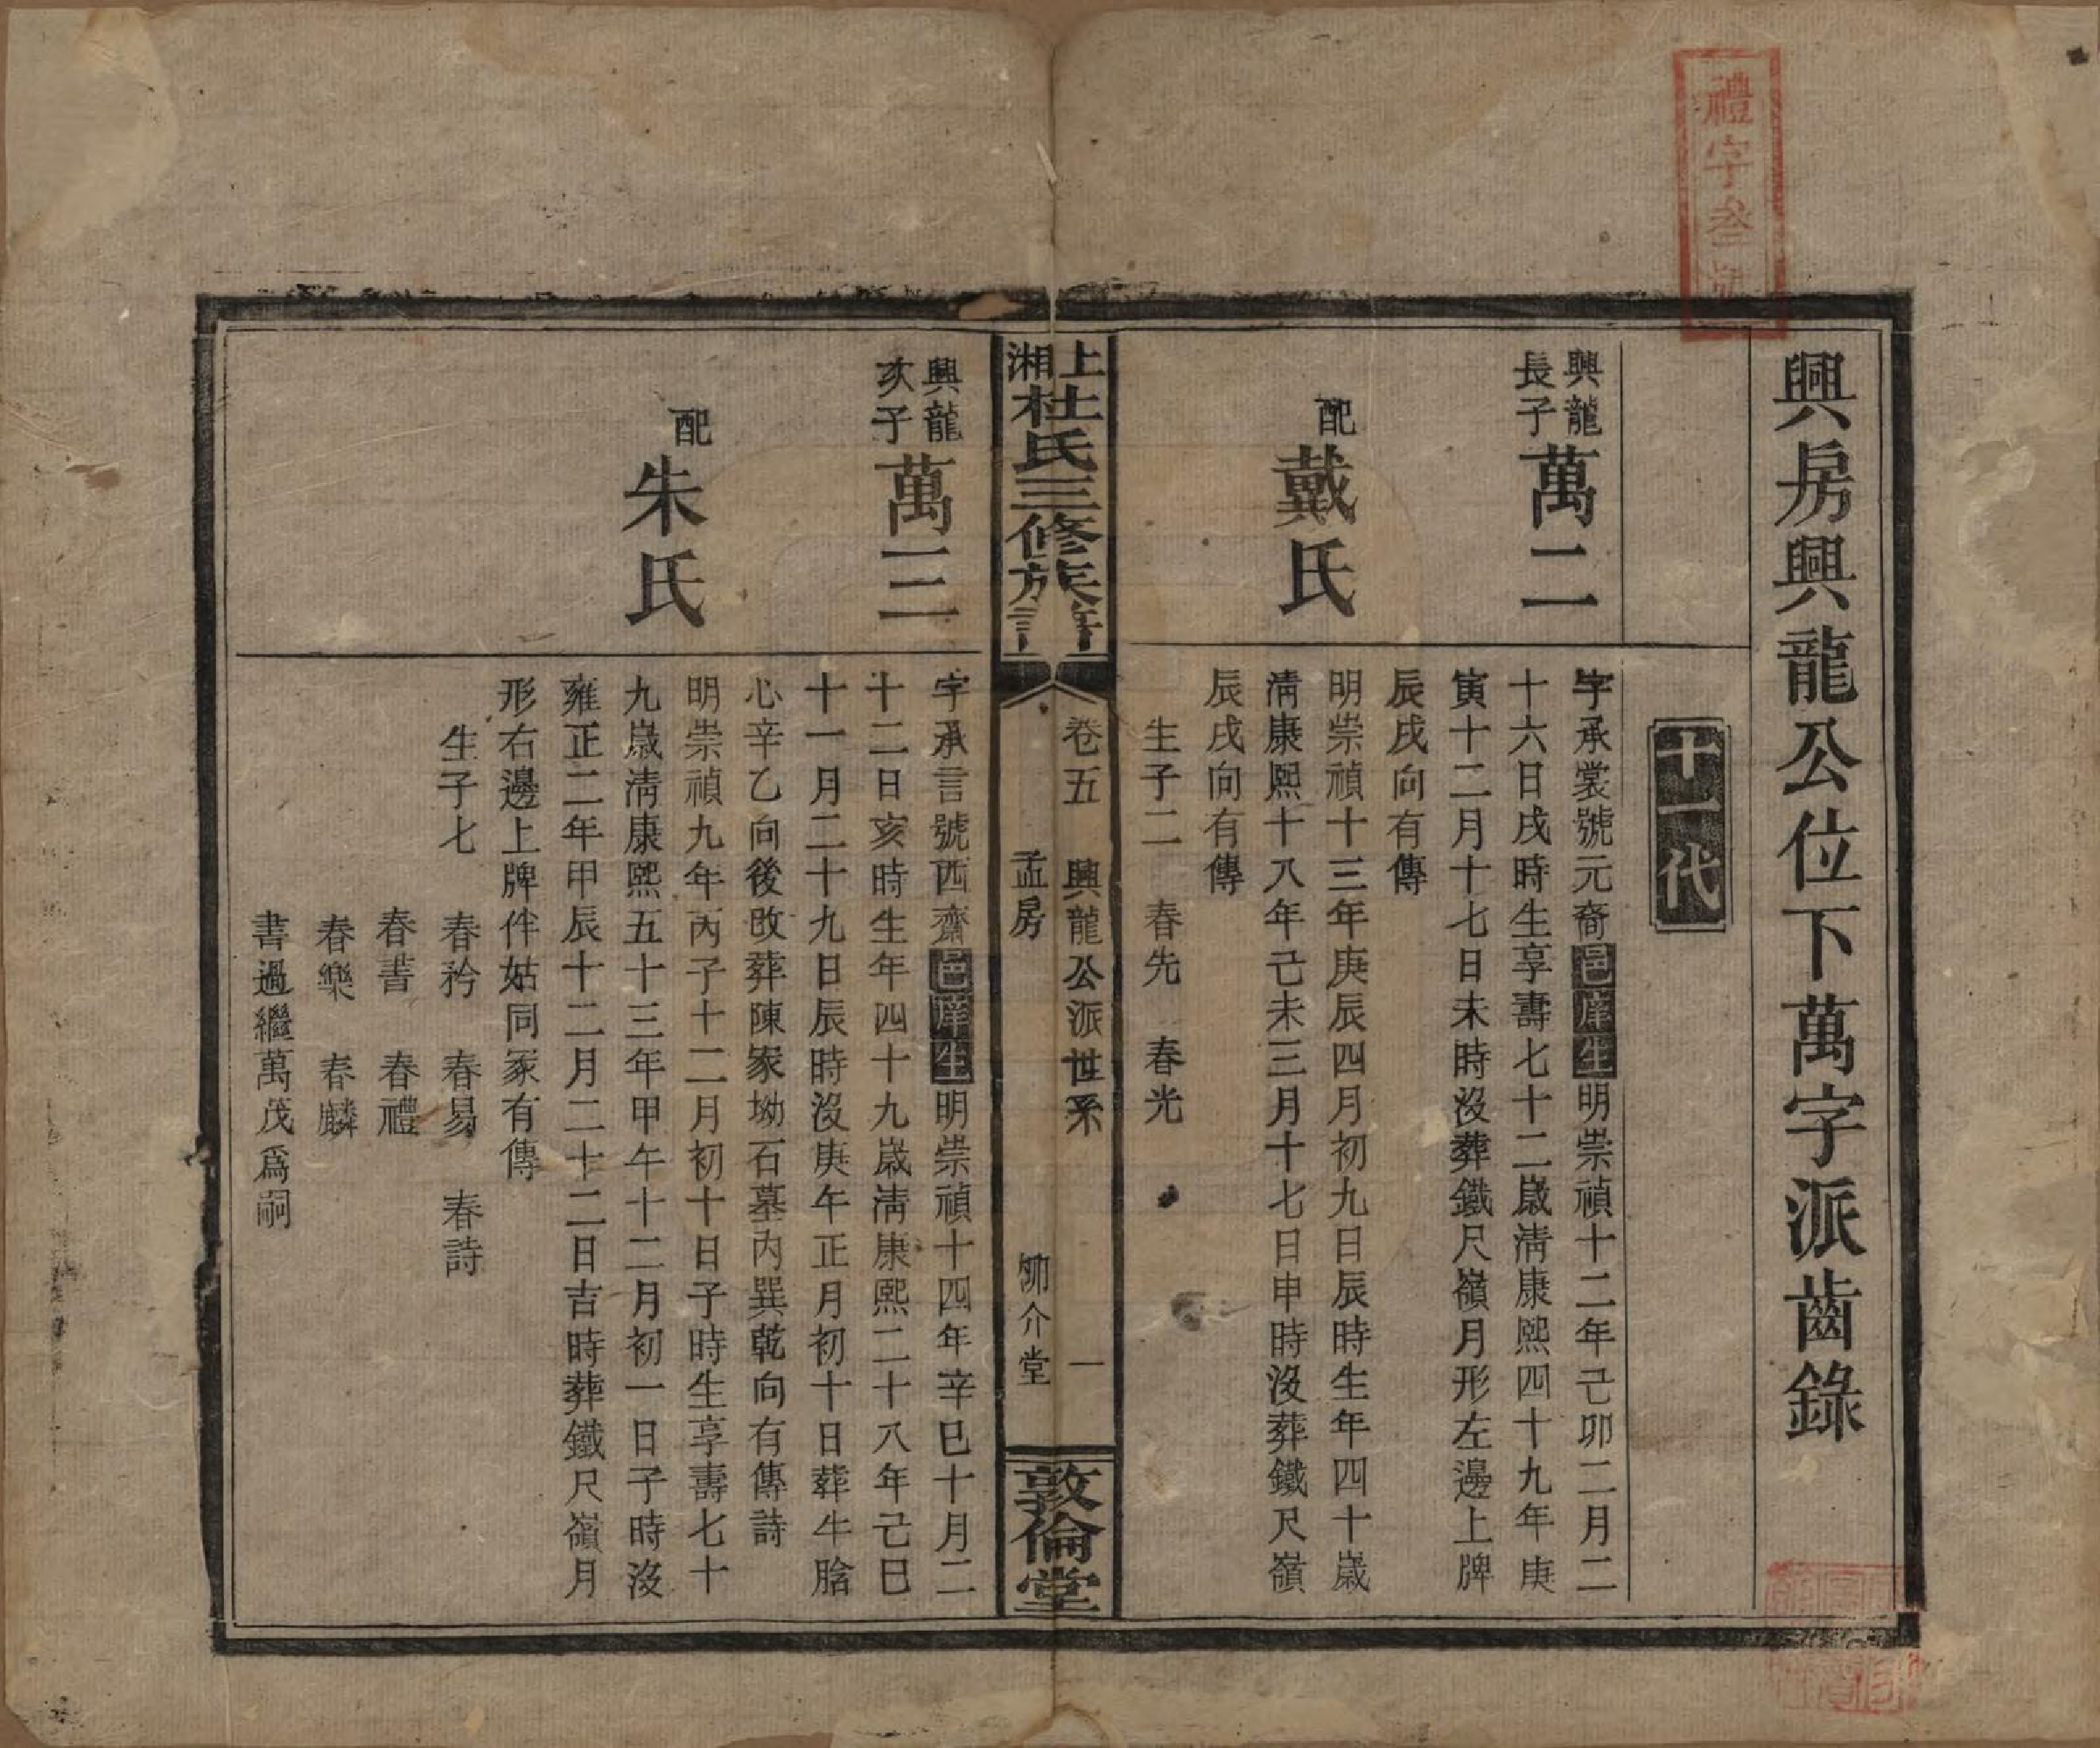 禮字叁號
興房興龍公位下萬字派齒錄
十一代
興龍長子
萬二
字承裳號元裔邑庠生明崇禎十二年己卯二月二
十六日戌時生享壽七十二歲清康熙四十九年庚
寅十二月十七日未時沒葬鐵尺嶺月形左邊上牌
辰戌向有傳
配
戴氏
明崇禎十三年庚辰四月初九日辰時生年四十歲
清康熙十八年己未三月十七日申時沒葬鐵尺嶺
辰戌向有傳
生子二 春先 春光
上湘杜氏三修族譜
卷五 興龍公派世系 一
孟房 㧕介堂
敦倫堂
興龍次子
萬三
字承言號西齋邑庠生明崇禎十四年辛巳十月二
十二日亥時生年四十九歲清康熙二十八年己巳
十一月二十九日辰時沒庚午正月初十日葬牛膁
心辛乙向後改葬陳家坳石墓內巽乾向有傳詩
配
朱氏
明崇禎九年丙子十二月初十日子時生享壽七十
九歲清康熙五十三年甲午十二月初一日子時沒
雍正二年甲辰十二月二十二日吉時葬鐵尺嶺月
形右邊上牌伴姑同冢有傳
生子七 春衿 春易 春詩
春書 春禮
春樂 春麟
書過繼萬茂爲嗣